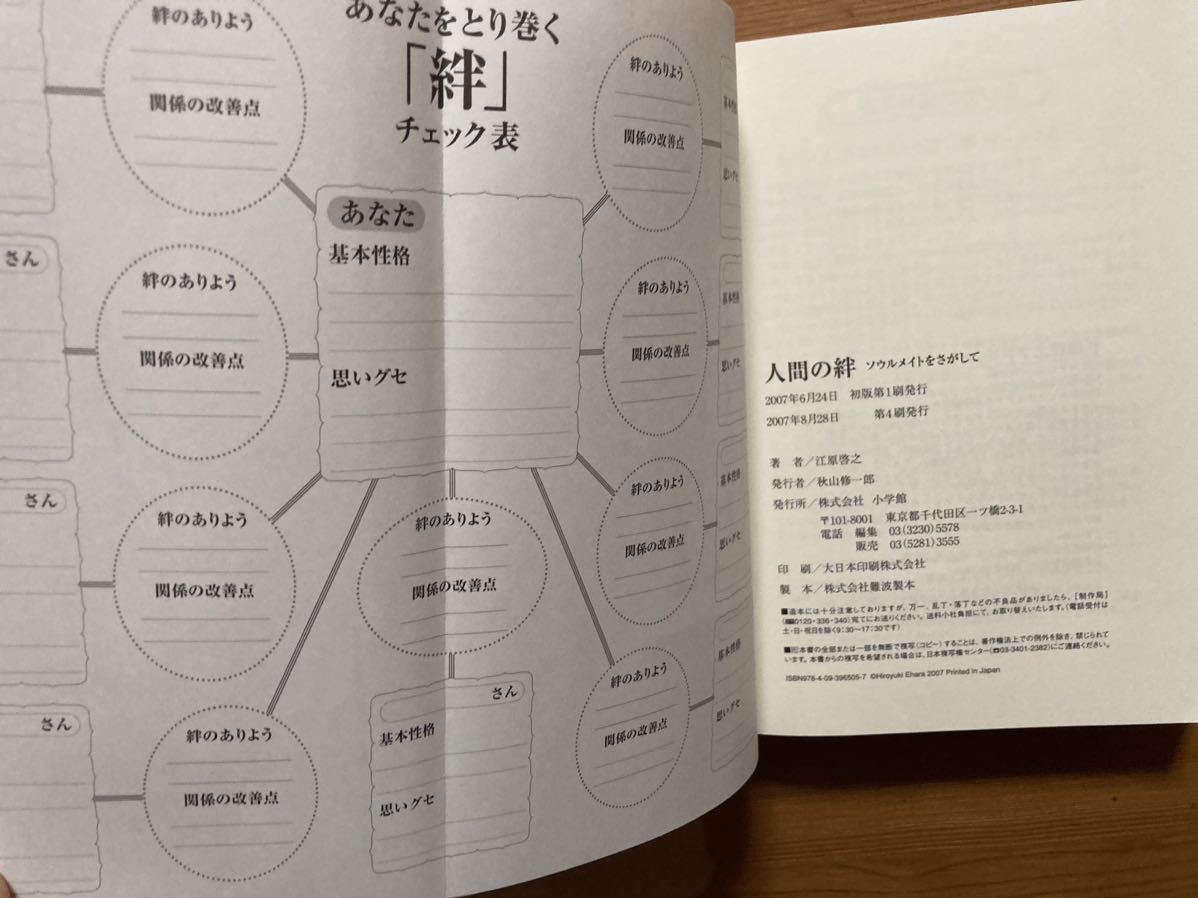 あなたをとり巻く
「絆」
チェック表
絆のありよう
関係の改善点
絆のありよう
関係の改善点
あなた
基本性格
思いグセ
さん
絆のありよう
関係の改善点
絆のありよう
関係の改善点
さん
絆のありよう
関係の改善点
絆のありよう
関係の改善点
絆のありよう
関係の改善点
さん
絆のありよう
関係の改善点
さん
基本性格
思いグセ
絆のありよう
関係の改善点
基本性格
思いグセ
基本性格
思いグセ
基本性格
思いグセ
基本性格
思いグセ
人間の絆 ソウルメイトをさがして
2007年6月24日 初版第1刷発行
2007年8月28日 第4刷発行
著 者/江原啓之
発行者/秋山修一郎
発行所/株式会社 小学館
〒101-8001 東京都千代田区一ツ橋2-3-1
電話 編集 03(3230)5578
販売 03(5281)3555
印 刷/大日本印刷株式会社
製 本/株式会社難波製本
■造本には十分注意しておりますが、万一、乱丁・落丁などの不良品がありましたら、[制作局]
(0120・336・340)宛てにお送りください。送料小社負担にて、お取り替えいたします。(電話受付は
土・日・祝日を除く9:30〜17:30です)
■本書の全部または一部を無断で複写(コピー)することは、著作権法上での例外を除き、禁じられて
います。本書からの複写を希望される場合は、日本複写権センター(☎03-3401-2382)にご連絡ください。
ISBN978-4-09-396505-7 ©Hiroyuki Ehara 2007 Printed in Japan